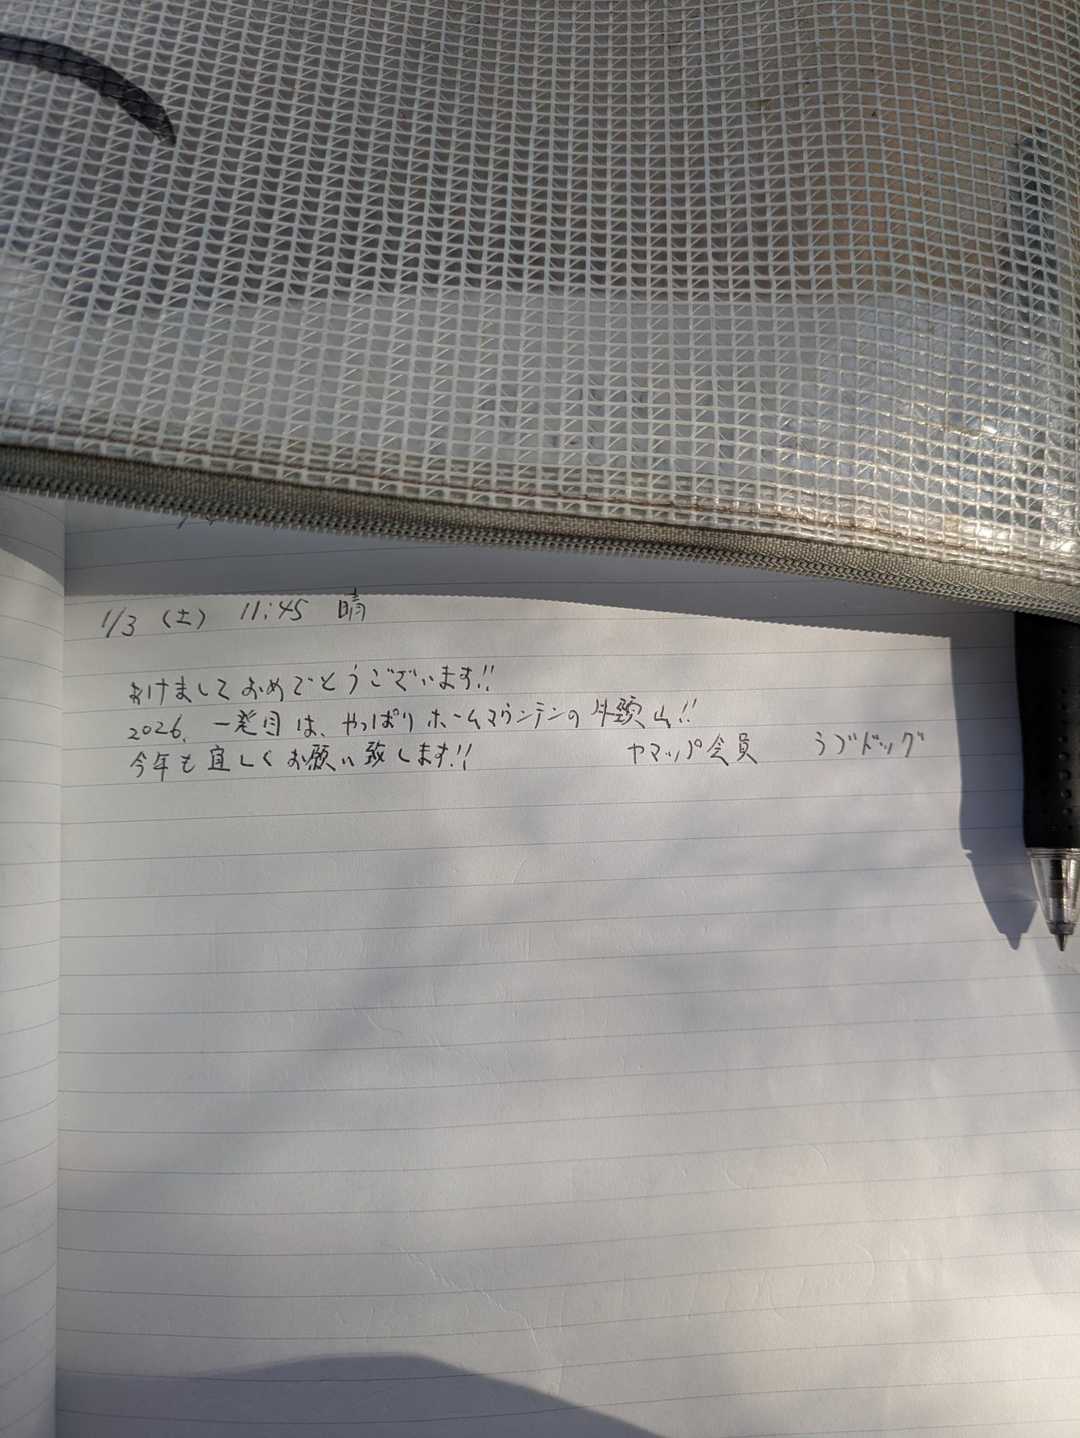 1/3 (土) 11:45 晴
あけましておめでとうございます!!
2026、一発目は、やっぱりホームマウンテンの外頭山!!
今年も宜しくお願い致します!! ヤマップ会員 ラブドッグ